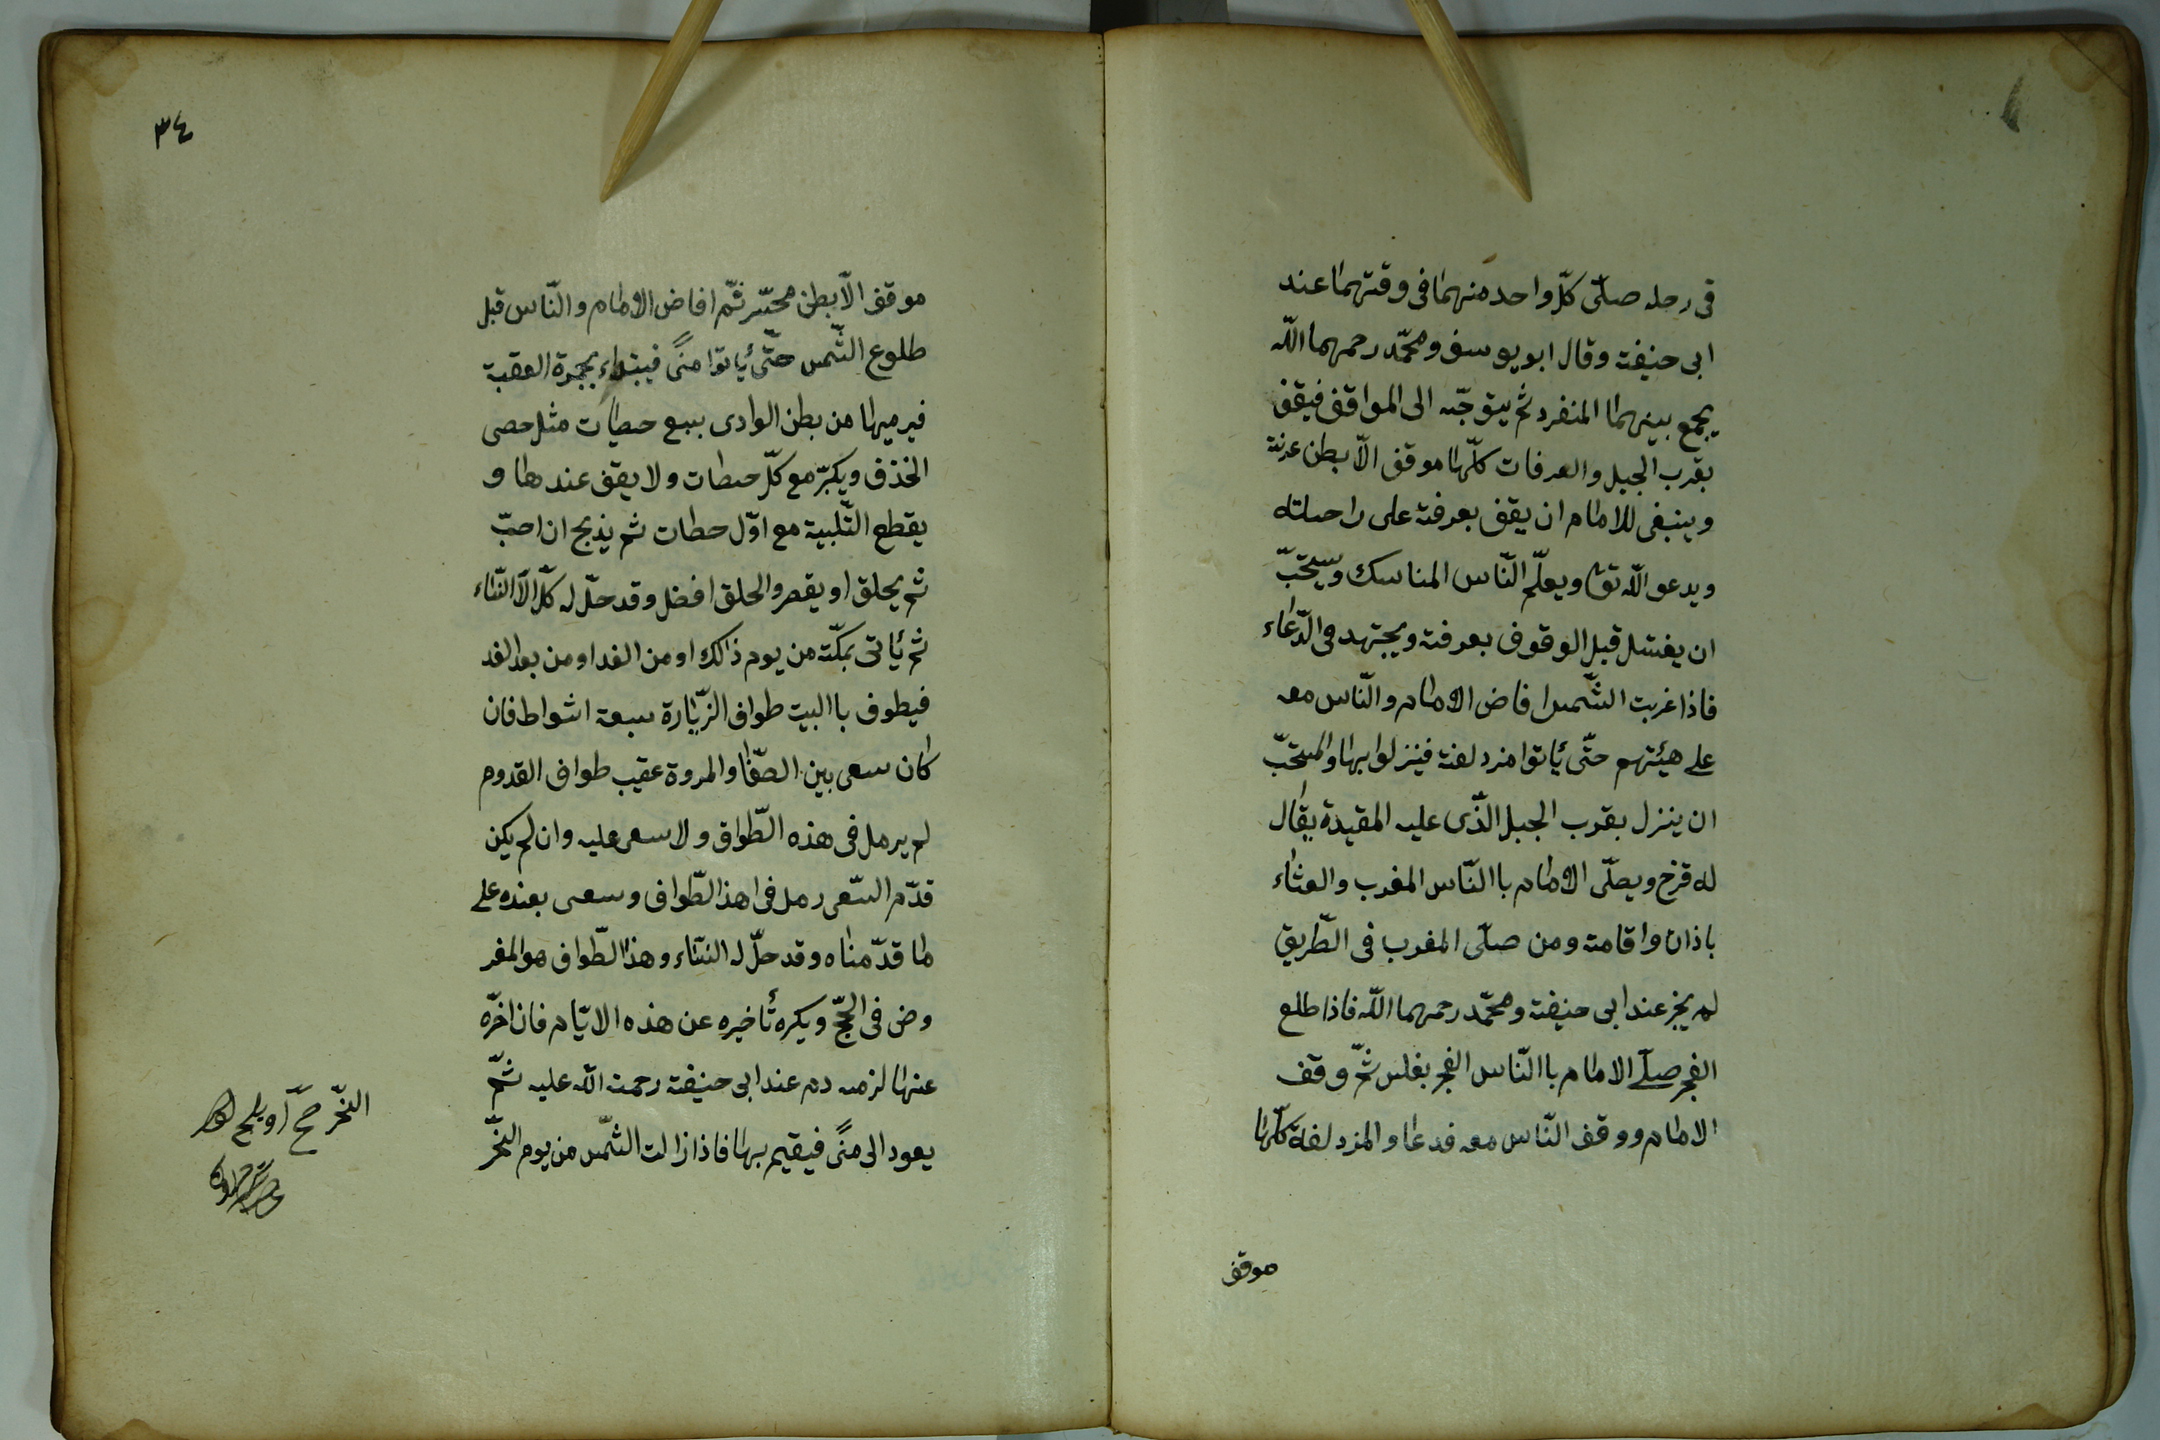 فى رحله صلّى كلّ واحد منهما فى وقتهما عند
ابى حنيفة وقال ابو يوسف ومحمّد رحمهما اللّه
يجمع بينهما المنفرد ثم يتوجّه الى المواقف فيقف
بقرب الجبل والعرفات كلّها موقف الّا بطن عرنة
وينبغى للامام ان يقف بعرفة على راحلته
ويدعو اللّه تعا ويعلّم النّاس المناسك ويستحبّ
ان يغتسل قبل الوقوف بعرفة ويجتهد فى الدّعاء
فاذا غربت الشّمس افاض الامام والنّاس معه
على هيئتهم حتّى يأتوا مزدلفة فينزلوا بها والمستحبّ
ان ينزل بقرب الجبل الذّى عليه المقيدة يقال
له قزح ويصلّى الامام باالنّاس المغرب والعشاء
باذان واقامة ومن صلّى المغرب فى الطّريق
لم يجز عند ابى حنيفة ومحمّد رحمهما اللّه فاذا طلع
الفجر صلّى الامام باالنّاس الفجر بغلس ثمّ وقف
الامام ووقف النّاس معه فدعا والمزدلفة كلّها
موقف
٣٤
موقف الّا بطن محسّر ثمّ افاض الامام والنّاس قبل
طلوع الشّمس حتّى يأتوا منًى فيبتداء بجمرة العقبة
فيرميها من بطن الوادى بسبع حصيات مثل حصى
الخذف ويكبّر مع كلّ حصات ولا يقف عندها و
يقطع التّلبية مع اوّل حصات ثم يذبح ان احبّ
ثم يحلق او يقصر والحلق افضل وقد حلّ له كلّ الّا النّساء
ثم يأتى بمكّة من يوم ذالك او من الغد او من بعد الغد
فيطوف باالبيت طواف الزّيارة سبعة اشواط فان
كان سعى بين الصّفا والمروة عقيب طواف القدوم
لم يرمل فى هذه الطّواف ولا سعى عليه وان لم يكن
قدّم السّعى رمل فى اهذا الطّواف وسعى بعده على
ما قدّمناه وقد حلّ له النّساء وهذا الطّواف هو المفر
وض فى الحجّ ويكره تأخيره عن هذه الايّام فان اخّره
عنها لزمه دم عند ابى حنيفة رحمت اللّه عليه ثمّ
يعود الى منًى فيقيم بها فاذا زالت الشّمس من يوم النّحر
النّحر صح